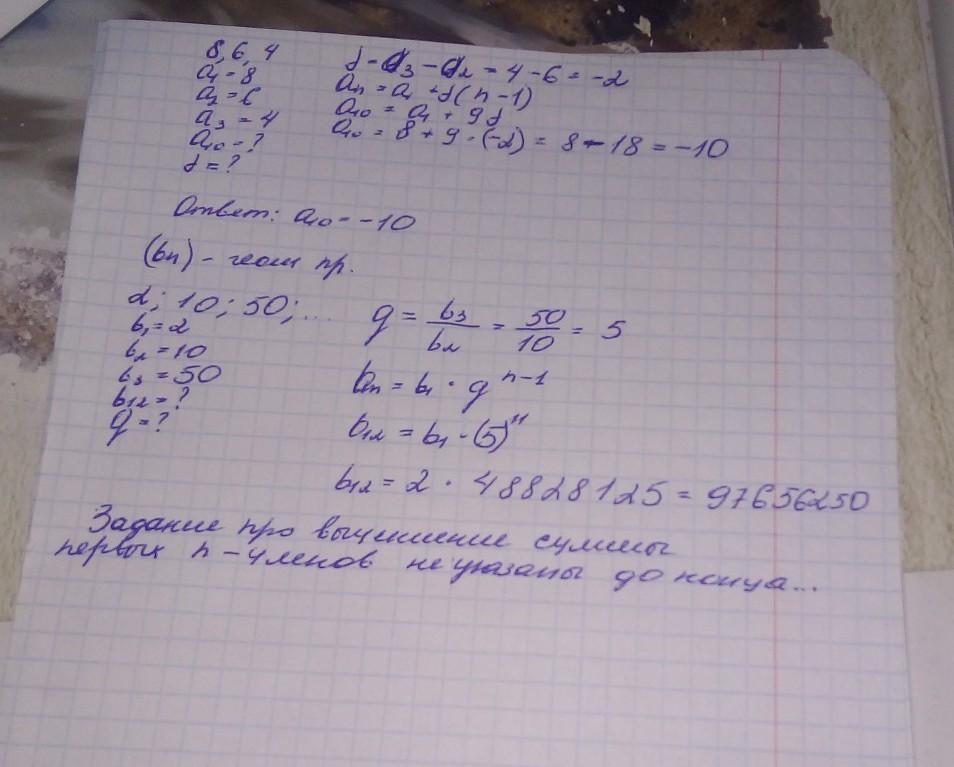 8, 6, 4
a₁ = 8
a₂ = 6
a₃ = 4
a₁₀ = ?
d = ?
d = a₃ - a₂ = 4 - 6 = -2
aₙ = a₁ + d(n-1)
a₁₀ = a₁ + 9d
a₁₀ = 8 + 9 · (-2) = 8 - 18 = -10
Ответ: a₁₀ = -10
(bₙ) - геом пр.
2; 10; 50; ...
b₁ = 2
b₂ = 10
b₃ = 50
b₁₂ = ?
q = ?
q = b₃/b₂ = 50/10 = 5
bₙ = b₁ · qⁿ⁻¹
b₁₂ = b₁ · (5)¹¹
b₁₂ = 2 · 48828125 = 97656250
Задание про вычисление суммы
первых n-членов не указаны до конца...